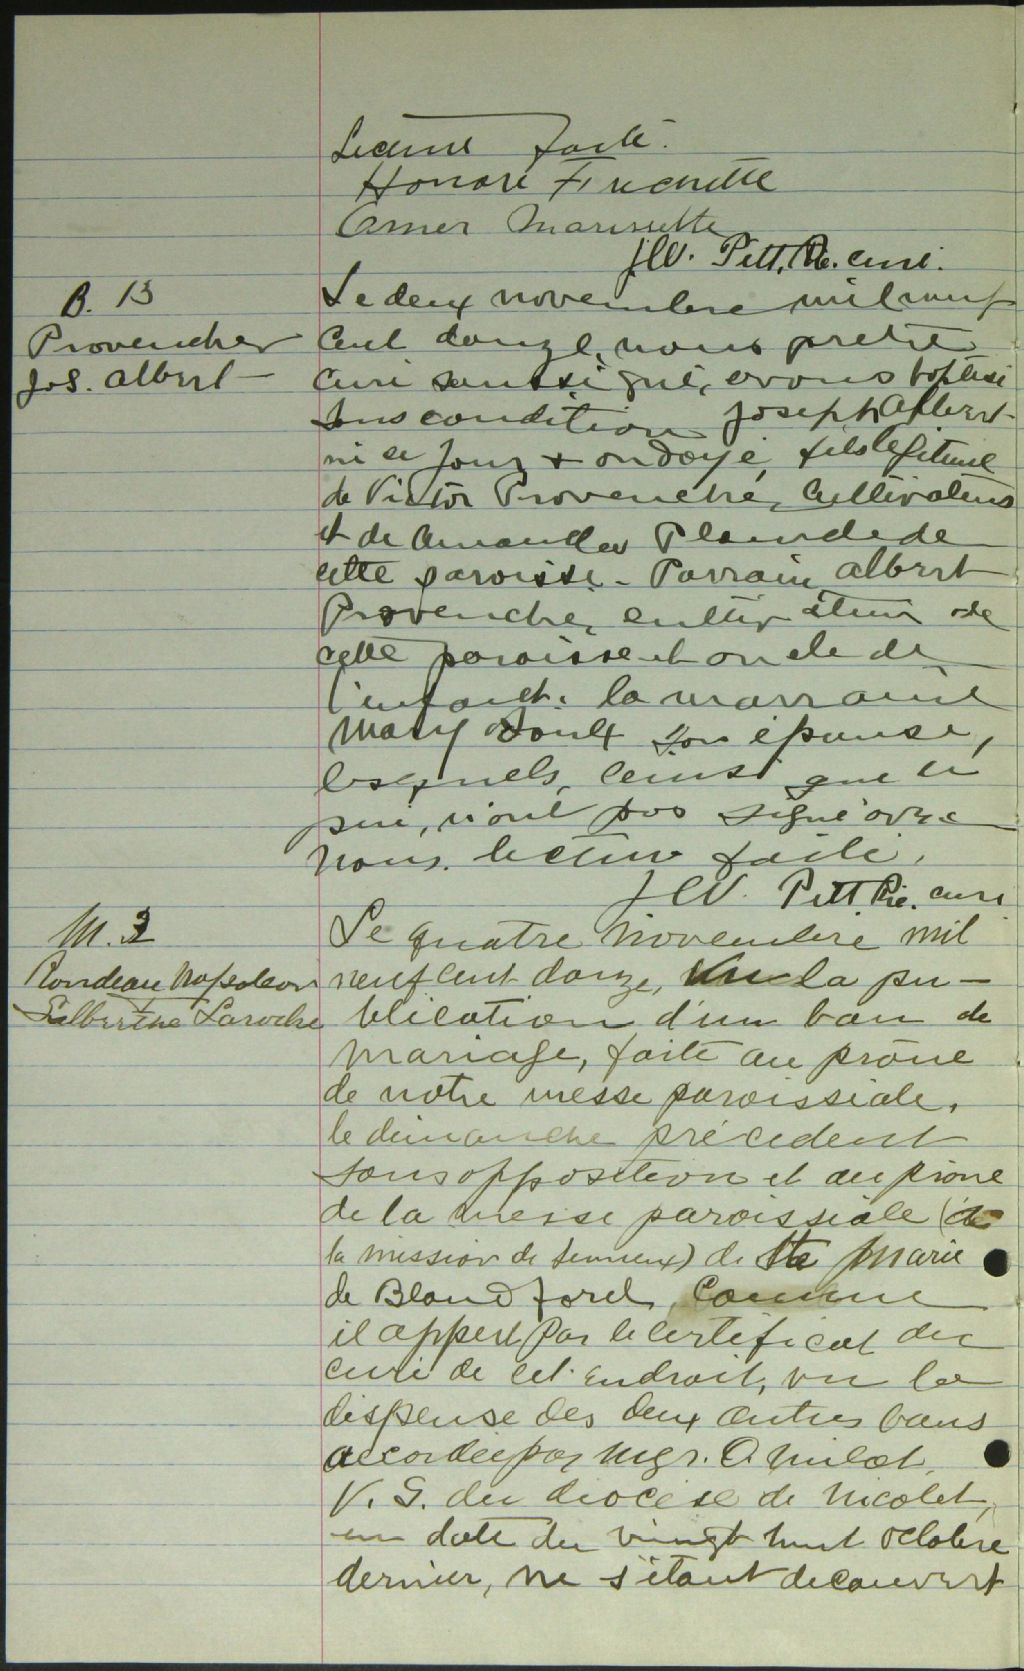 Lecture faite.
Honoré Frechette
Omer Marissette
J. W. Pitt, Ptre. curé.
B. 13
Provencher
Jos. Albert
Le deux novembre mil neuf
cent douze, nous pretre
curé soussigné, avons baptisé
sous condition Joseph Albert
né ce jour & ondoyé, fils légitime
de Victor Provencher, cultivateur
et de Amanda Plende de
cette paroisse - Parrain Albert
Provencher, cultivateur de
cette paroisse et oncle de
l'enfant. la marraine
Mary Houlx son épouse,
lesquels, ainsi que le
père, n'ont pas signé avec
nous. lecture faite.
J. W. Pitt Ptre. curé
M. 2
Rondeau Napoleon
& Albertine Laroche
Le quatre novembre mil
neuf cent douze, Vu la pu-
blication d'un ban de
mariage, faite au prône
de notre messe paroissiale,
le dimanche précedent
sans opposition et au prône
de la messe paroissiale (de
la mission de Lemieux) de Ste Marie
de Blandford, comme
il appert par le certificat du
curé de cet endroit, vu la
dispense des deux autres bans
accordée par Mgr. O. Milot,
V. G. du diocèse de Nicolet,
en date du vingt huit octobre
dernier, ne s'étant decouvert